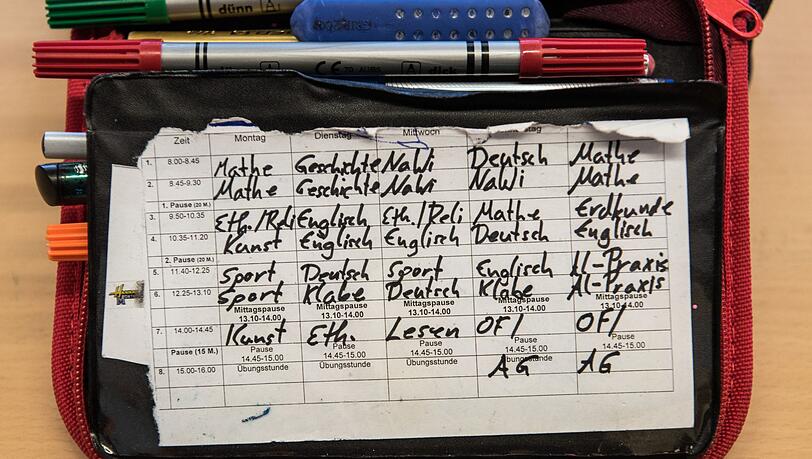 dünn A1
CE A disk
Zeit Montag Dienstag Mittwoch
1. 8.00-8.45 Mathe Geschichte NaWi Deutsch Mathe
2. 8.45-9.30 Mathe Geschichte NaWi NaWi Mathe
1. Pause (20 M.)
3. 9.50-10.35 Eth./Reli Englisch Eth./Reli Mathe Erdkunde
4. 10.35-11.20 Kunst Englisch Englisch Deutsch Englisch
2. Pause (20 M.)
5. 11.40-12.25 Sport Deutsch Sport Englisch Al-Praxis
6. 12.25-13.10 Sport Klabe Deutsch Klabe Al-Praxis
Mittagspause Mittagspause Mittagspause Mittagspause Mittagspause
13.10-14.00 13.10-14.00 13.10-14.00 13.10-14.00 13.10-14.00
7. 14.00-14.45 Kunst Eth. Lesen OF/ OF/
Pause (15 M.) Pause Pause Pause Pause Pause
14.45-15.00 14.45-15.00 14.45-15.00 14.45-15.00 14.45-15.00
8. 15.00-16.00 Übungsstunde Übungsstunde Übungsstunde Übungsstunde
AG AG